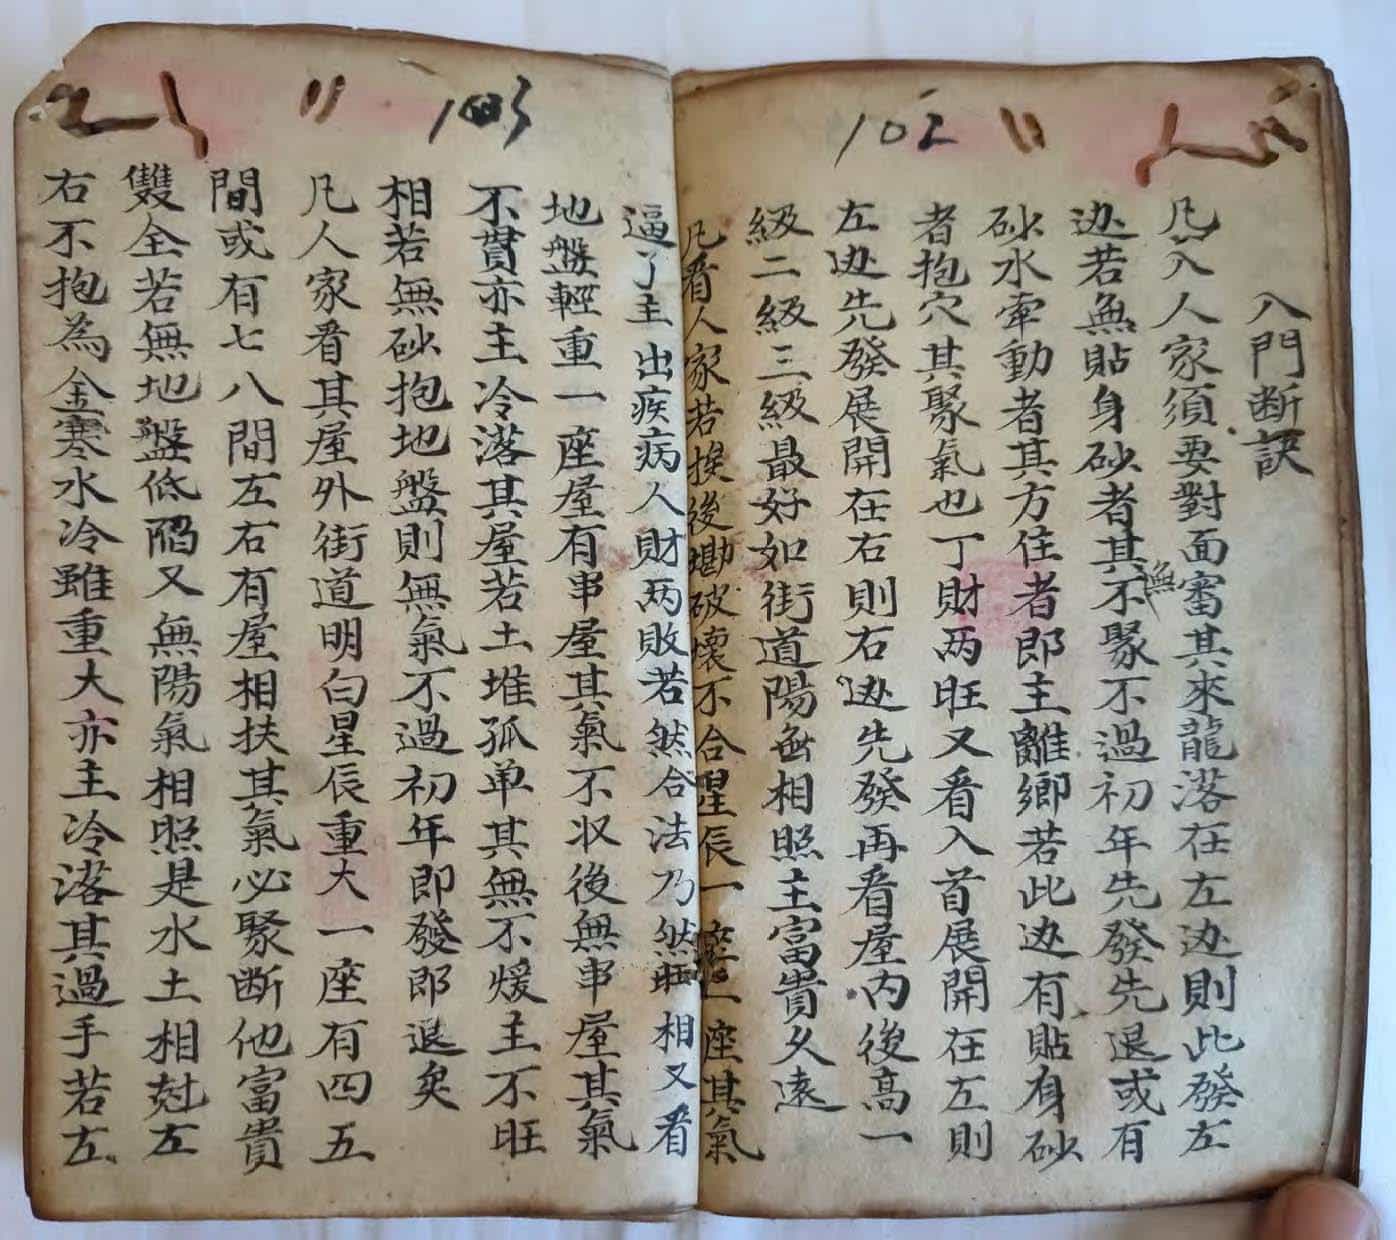 102
入門断訣
凡入人家須要對面審其來龍落在左边則此發左
边若無貼身砂者其不聚不過初年先發先退或有
無
砂水牽動者其方住者即主離鄉若此边有貼身砂
者抱穴其聚氣也丁財两旺又看入首展開在左則
左边先發展開在右則右边先發再看屋内後高一
級二級三級最好如街道陽合相照主富貴久遠
凡看人家若挨後墈破壞不合星辰一座座其氣
103
逼了主出疾病人財两敗若然合法乃然旺相又看
地盤輕重一座屋有串屋其氣不収後無串屋其氣
不貫亦主冷落其屋若土堆孤单其無不煖主不旺
相若無砂抱地盤則無氣不過初年即發即退矣
凡人家看其屋外街道明白星辰重大一座有四五
間或有七八間左右有屋相扶其氣必聚断他富貴
雙全若無地盤低陷又無陽氣相照是水土相尅左
右不抱為金寒水冷雖重大亦主冷落其過手若左